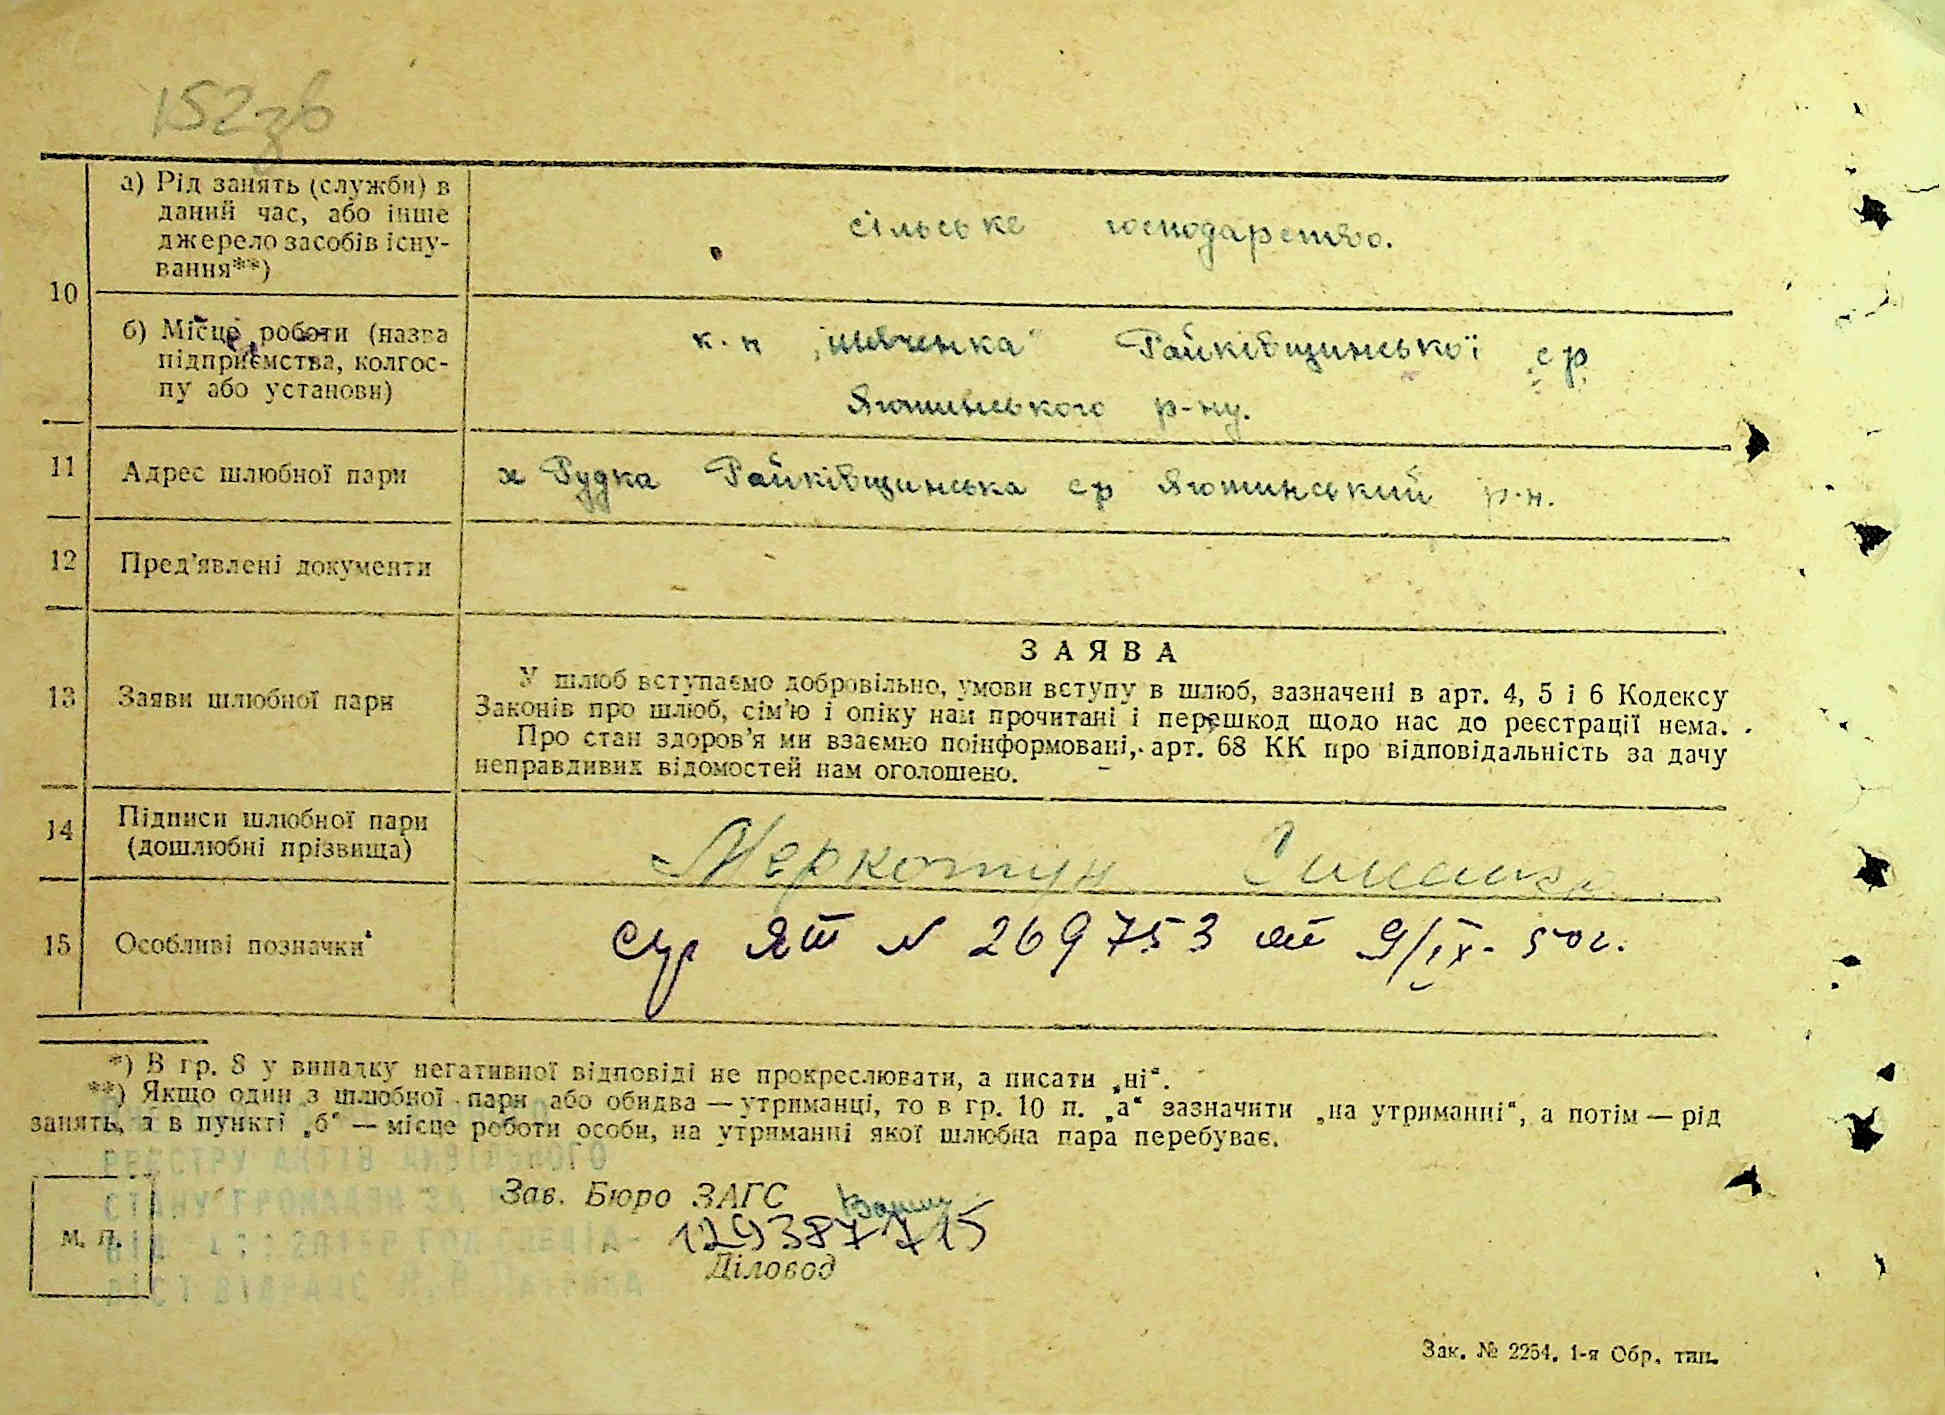 152зв
10
а) Рід занять (служби) в
даний час, або інше
джерело засобів існу-
вання**)
сільське господарство.
б) Місце роботи (назва
підприємства, колгос-
пу або установи)
к-п Райківщинської ср
Яготинського р-ну.
11
Адрес шлюбної пари
х Рудка Райківщинська ср Яготинський р-н.
12
Пред’явлені документи
13
Заяви шлюбної пари
ЗАЯВА
У шлюб вступаємо добровільно, умови вступу в шлюб, зазначені в арт. 4, 5 і 6 Кодексу
Законів про шлюб, сім’ю і опіку нам прочитані і перешкод щодо нас до реєстрації нема.
Про стан здоров’я ми взаємно поінформовані, арт. 68 КК про відповідальність за дачу
неправдивих відомостей нам оголошено.
14
Підписи шлюбної пари
(дошлюбні прізвища)
Меркотун
15
Особливі позначки
ЯШ N 269753 от 9/IX- 50 г.
*) В гр. 8 у випадку негативної відповіді не прокреслювати, а писати „ні“.
**) Якщо один з шлюбної пари або обидва — утриманці, то в гр. 10 п. „а“ зазначити „на утриманні“, а потім — рід
занять, а в пункті „б“ — місце роботи особи, на утриманні якої шлюбна пара перебуває.
РЕЄСТРУ АКТІВ ЦИВІЛЬНОГО
СТАНУ ГРОМАДЯН ЗА
М. П.
Зав. Бюро ЗАГС
129387715
Діловод
Зак. № 2254. 1-я Обр. тип.